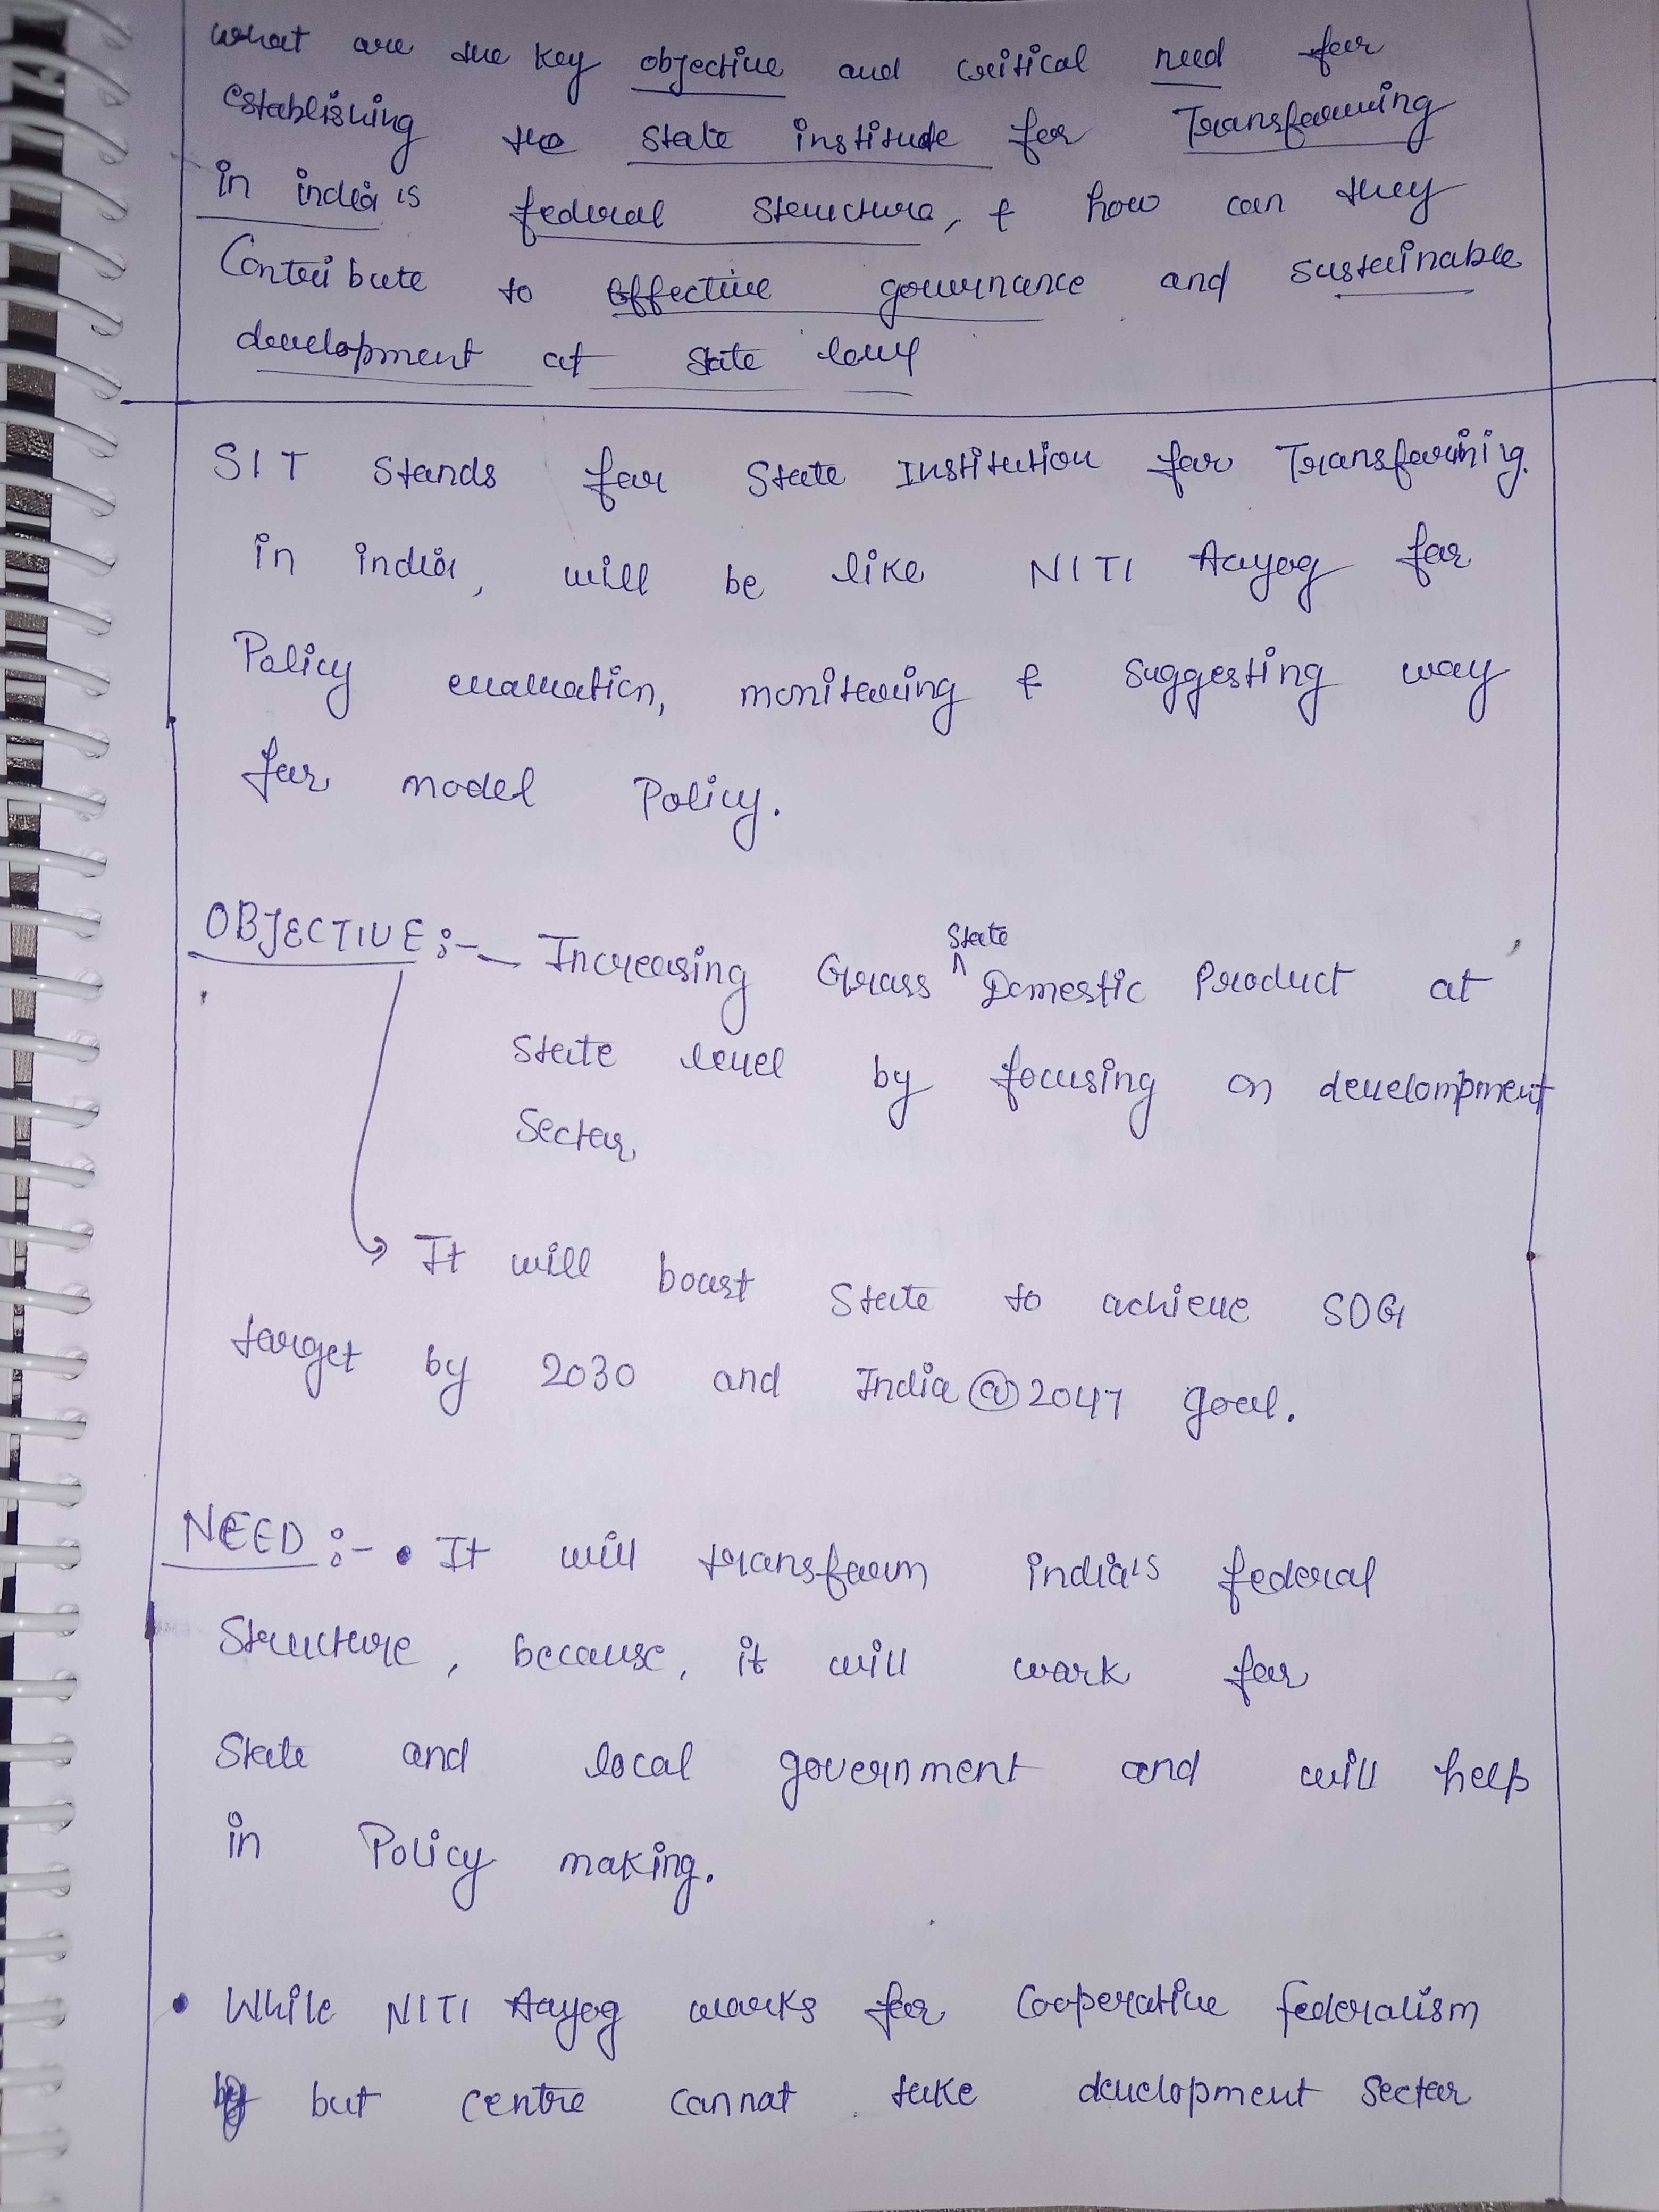 what are the key objective and critical need for
establishing the state institute for Transforming
in india's federal structure, & how can they
Contribute to effective governance and sustainable
development at state level
SIT stands for State Institution for Transforming.
in india, will be like NITI Aayog for
Policy evaluation, monitoring & suggesting way
for model Policy.
OBJECTIVE :- - Increasing Gross State Domestic Product at
state level by focusing on develompment
Sector
It will boast State to achieve SDG
target by 2030 and India@2047 goal.
NEED :- • It will transform india's federal
Structure, because, it will work for
State and local government and will help
in Policy making.
• While NITI Aayog works for Cooperative federalism
but centre cannot take development sector